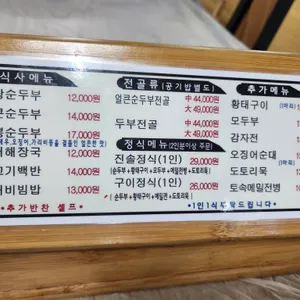 식사메뉴
순두부 12,000원
순두부 14,000원
순두부 17,000원
해장국 12,000원
기백반 14,000원
비빔밥 13,000원
*추가반찬 셀프*
전골류 (공기밥별도)
얼큰순두부전골 中 44,000원
大 49,000원
두부전골 中 44,000원
大 49,000원
정식메뉴 (2인분이상 주문)
진솔정식(1인) 29,000원
(순두부+황태구이+모두부+메밀전+도토리묵)
구이정식(1인) 26,000원
(순두부+황태구이+도토리묵)
추가메뉴
황태구이
모두부
감자전
오징어순대
도토리묵
토속메밀전병
*1인1식부탁드립니다*